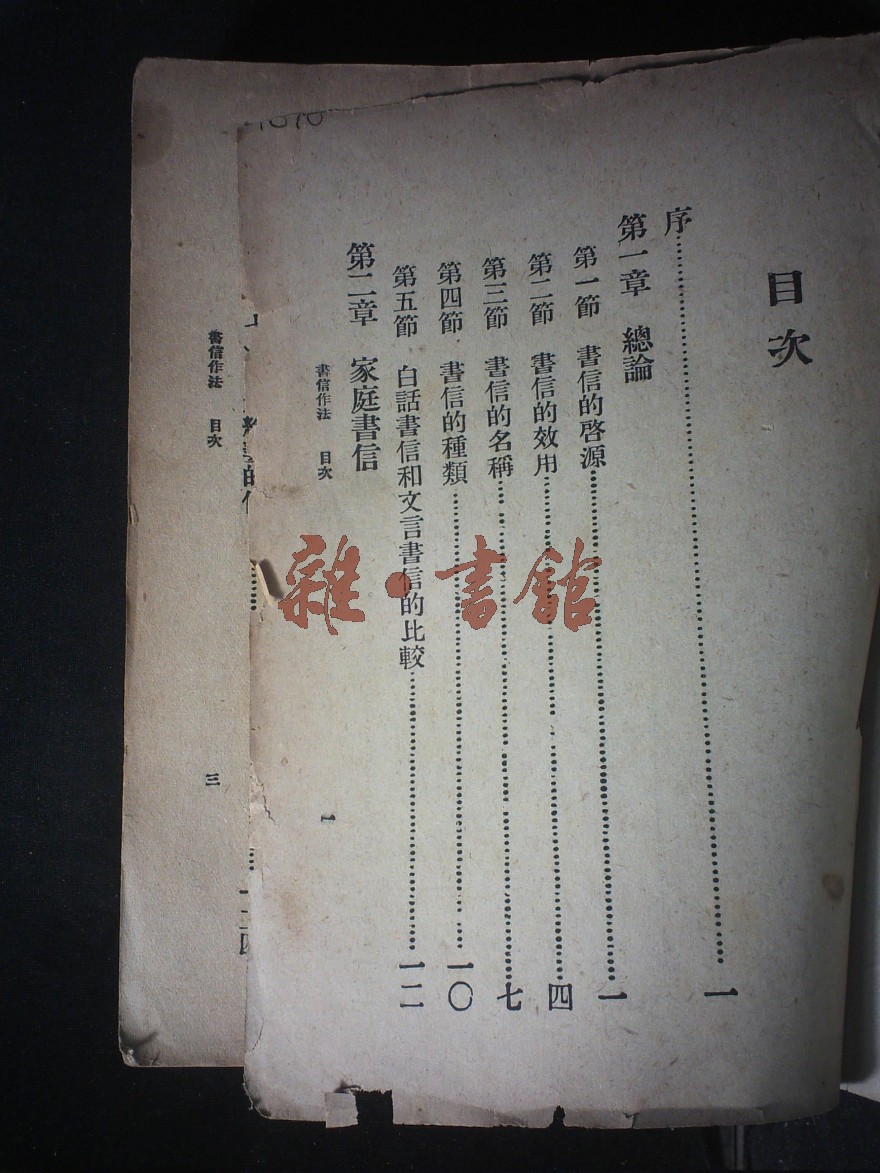 目次
序……一
第一章　總論
第一節　書信的啓源……一
第二節　書信的效用……四
第三節　書信的名稱……七
第四節　書信的種類……一〇
第五節　白話書信和文言書信的比較……一二
第二章　家庭書信
書信作法　目次　一
書信作法　目次　三
雜·書館